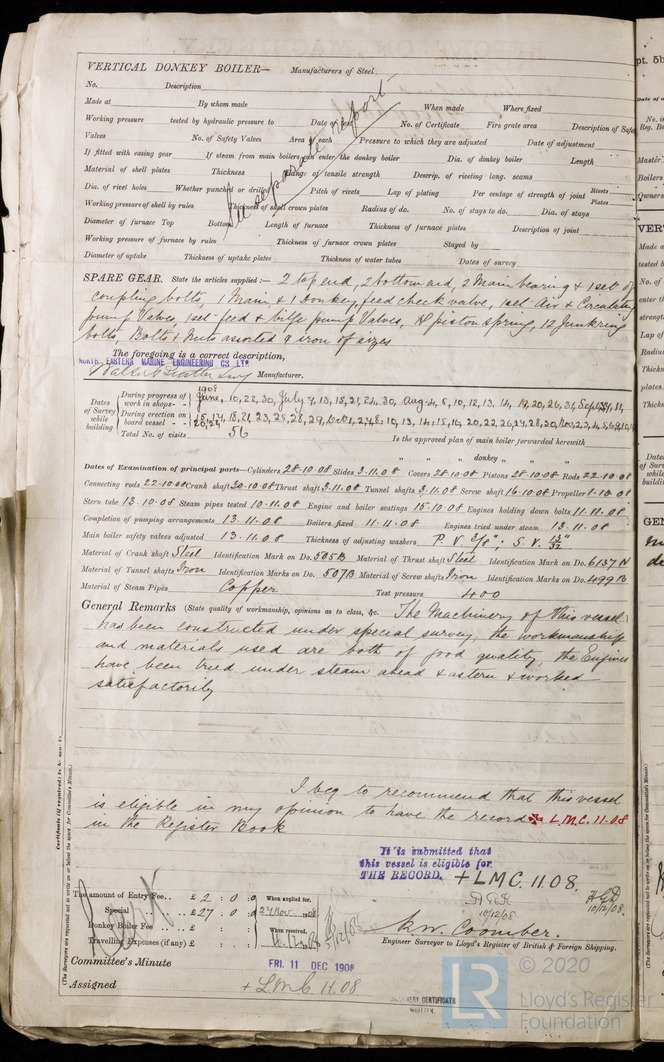 VERTICAL DONKEY BOILER— Manufacturers of Steel
No. Description
Made at By whom made When made Where fixed
Working pressure tested by hydraulic pressure to Date of test No. of Certificate Fire grate area Description of Safe
Valves No. of Safety Valves Area of each Pressure to which they are adjusted Date of adjustment
If fitted with easing gear If steam from main boilers can enter the donkey boiler Dia. of donkey boiler Length
Material of shell plates Thickness Range of tensile strength Descrip. of riveting long. seams
Dia. of rivet holes Whether punched or drilled Pitch of rivets Lap of plating Per centage of strength of joint Rivets Plates
Working pressure of shell by rules Thickness of shell crown plates Radius of do. No. of stays to do. Dia. of stays
Diameter of furnace Top Bottom Length of furnace Thickness of furnace plates Description of joint
Working pressure of furnace by rules Thickness of furnace crown plates Stayed by
Diameter of uptake Thickness of uptake plates Thickness of water tubes Dates of survey
See separate report
SPARE GEAR. State the articles supplied:— 2 top end, 2 bottom end, 2 Main bearing & 1 set of
coupling bolts, 1 Main & 1 Donkey feed check valve, 1 set Air & Circulating
pump Valves, 1 set feed & bilge pump Valves, piston spring, 12 Junk ring
bolts, Bolts & Nuts assorted & iron of sizes
The foregoing is a correct description,
NORTH EASTERN MARINE ENGINEERING CO LTD
Manufacturer.
Dates of Survey while building
During progress of work in shops - - 1908 June, 10, 22, 30, July 7, 13, 15, 21, 24, 30, Aug 4, 8, 10, 12, 13, 14, 19, 20, 26, 31, Sept
During erection on board vessel - - 15, 17, 18, 21, 23, 25, 28, 29, Oct 1, 2, 4, 8, 10, 13, 14, 15, 19, 20, 22, 26, 27, 28, 30 Nov 2, 3, 4, 5, 6, 9, 10, 11
Total No. of visits 56
Is the approved plan of main boiler forwarded herewith
" " " donkey " " "
Dates of Examination of principal parts—Cylinders 28.10.08 Slides 3.11.08 Covers 28.10.08 Pistons 28.10.08 Rods 22.10.08
Connecting rods 22.10.08 Crank shaft 20.10.08 Thrust shaft 3.11.08 Tunnel shafts 3.11.08 Screw shaft 16.10.08 Propeller 1.10.08
Stern tube 13.10.08 Steam pipes tested 10.11.08 Engine and boiler seatings 15.10.08 Engines holding down bolts 11.11.08
Completion of pumping arrangements 13.11.08 Boilers fixed 11.11.08 Engines tried under steam 13.11.08
Main boiler safety valves adjusted 13.11.08 Thickness of adjusting washers P.V. 3/8"; S.V. 13/32"
Material of Crank shaft Steel Identification Mark on Do. 505B Material of Thrust shaft Steel Identification Mark on Do. 6137N
Material of Tunnel shafts Iron Identification Marks on Do. 507B Material of Screw shafts Iron Identification Marks on Do. 499B
Material of Steam Pipes Copper Test pressure 400
General Remarks (State quality of workmanship, opinions as to class, &c. The Machinery of this vessel
has been constructed under special survey, the workmanship
and materials used are both of good quality, the Engines
have been tried under steam ahead & astern & worked
satisfactorily
I beg to recommend that this vessel
is eligible in my opinion to have the record ✠ L.M.C. 11.08
in the Register Book
It is submitted that
this vessel is eligible for
THE RECORD. + LMC. 11.08.
10/12/08
10/12/08.
The amount of Entry Fee .. £ 2 : 0 : 0 When applied for,
Special .. £ 27 : 0 : 24 Nov 1908
Donkey Boiler Fee .. £ : : When received,
Travelling Expenses (if any) £ : :
K.W. Coomber.
Engineer Surveyor to Lloyd's Register of British & Foreign Shipping.
Committee's Minute FRI. 11 DEC 1908
Assigned + LMC 11.08
MACHINERY CERTIFICATE
WRITTEN.
(The Surveyors are requested not to write on or below the space for Committee's Minute.)
LR © 2020
Lloyd's Register
Foundation